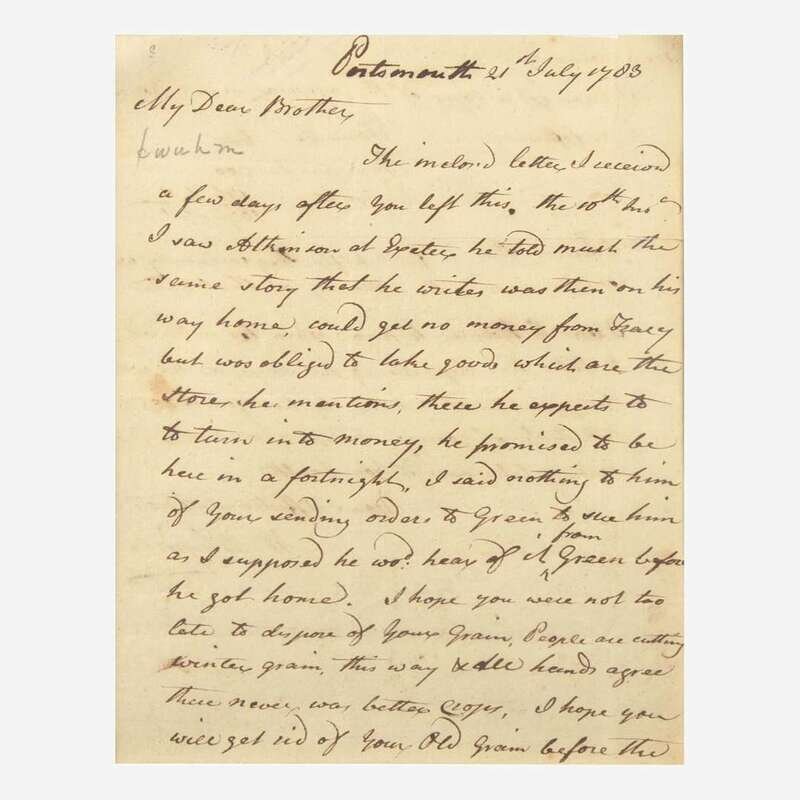 Portsmouth 21st July 1783
My Dear Brother
The inclosd letter I receivd
a few days after you left this. the 10th Inst
I saw Atkinson at Exeter he told much the
same story that he writes was then on his
way home, could get no money from Tracy
but was obligd to take goods which are the
stores he mentions, these he expects to
to turn into money, he promised to be
here in a fortnight, I said nothing to him
of Your sending orders to Green to sue him
from
as I supposed he wod. hear of it Green before
he got home. I hope you were not too
late to dispose of Your Grain, People are cutting
winter grain, this way & all hands agree
there never was better Crops, I hope you
will get rid of Your Old Grain before the